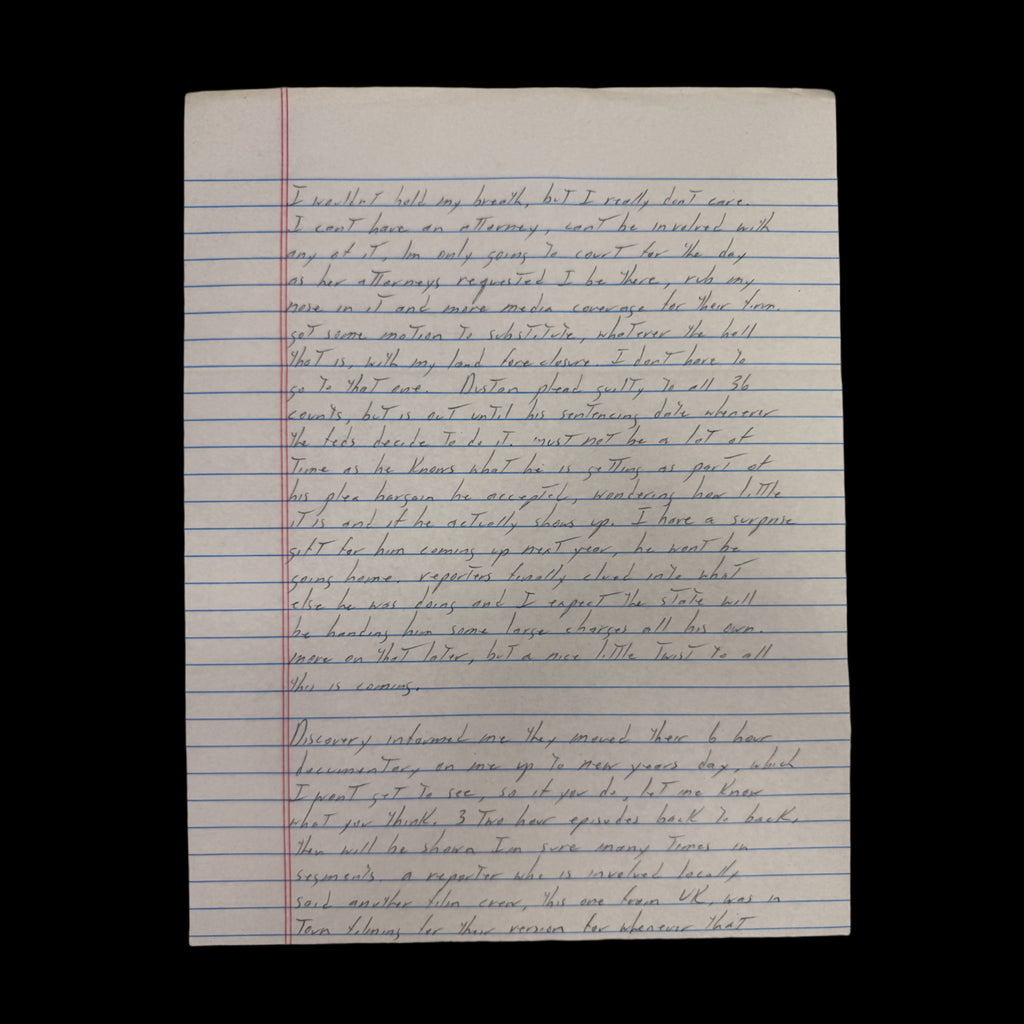 I wouldnt hold my breath, but I really dont care.
I cant have an attorney, cant be involved with
any of it, Im only going to court for the day
as her attorneys requested I be there, rub my
nose in it and more media coverage for their firm.
got some motion to substitute, whatever the hell
that is, with my land foreclosure. I dont have to
go to that one. Dustan plead guilty to all 36
counts, but is out until his sentencing date whenever
the feds decide to do it. must not be a lot of
time as he knows what he is getting as part of
his plea bargain he accepted, wondering how little
it is and if he actually shows up. I have a surprise
gift for him coming up next year, he wont be
going home. reporters finally clued into what
else he was doing and I expect the state will
be handing him some large charges all his own.
more on that later, but a nice little twist to all
this is coming.
Discovery informed me they moved their 6 hour
documentary on me up to new years day, which
I wont get to see, so if you do, let me know
what you think. 3 two hour episodes back to back,
then will be shown Im sure many times in
segments. a reporter who is involved locally
said another film crew, this one from UK, was in
Town filming for their version for whenever that